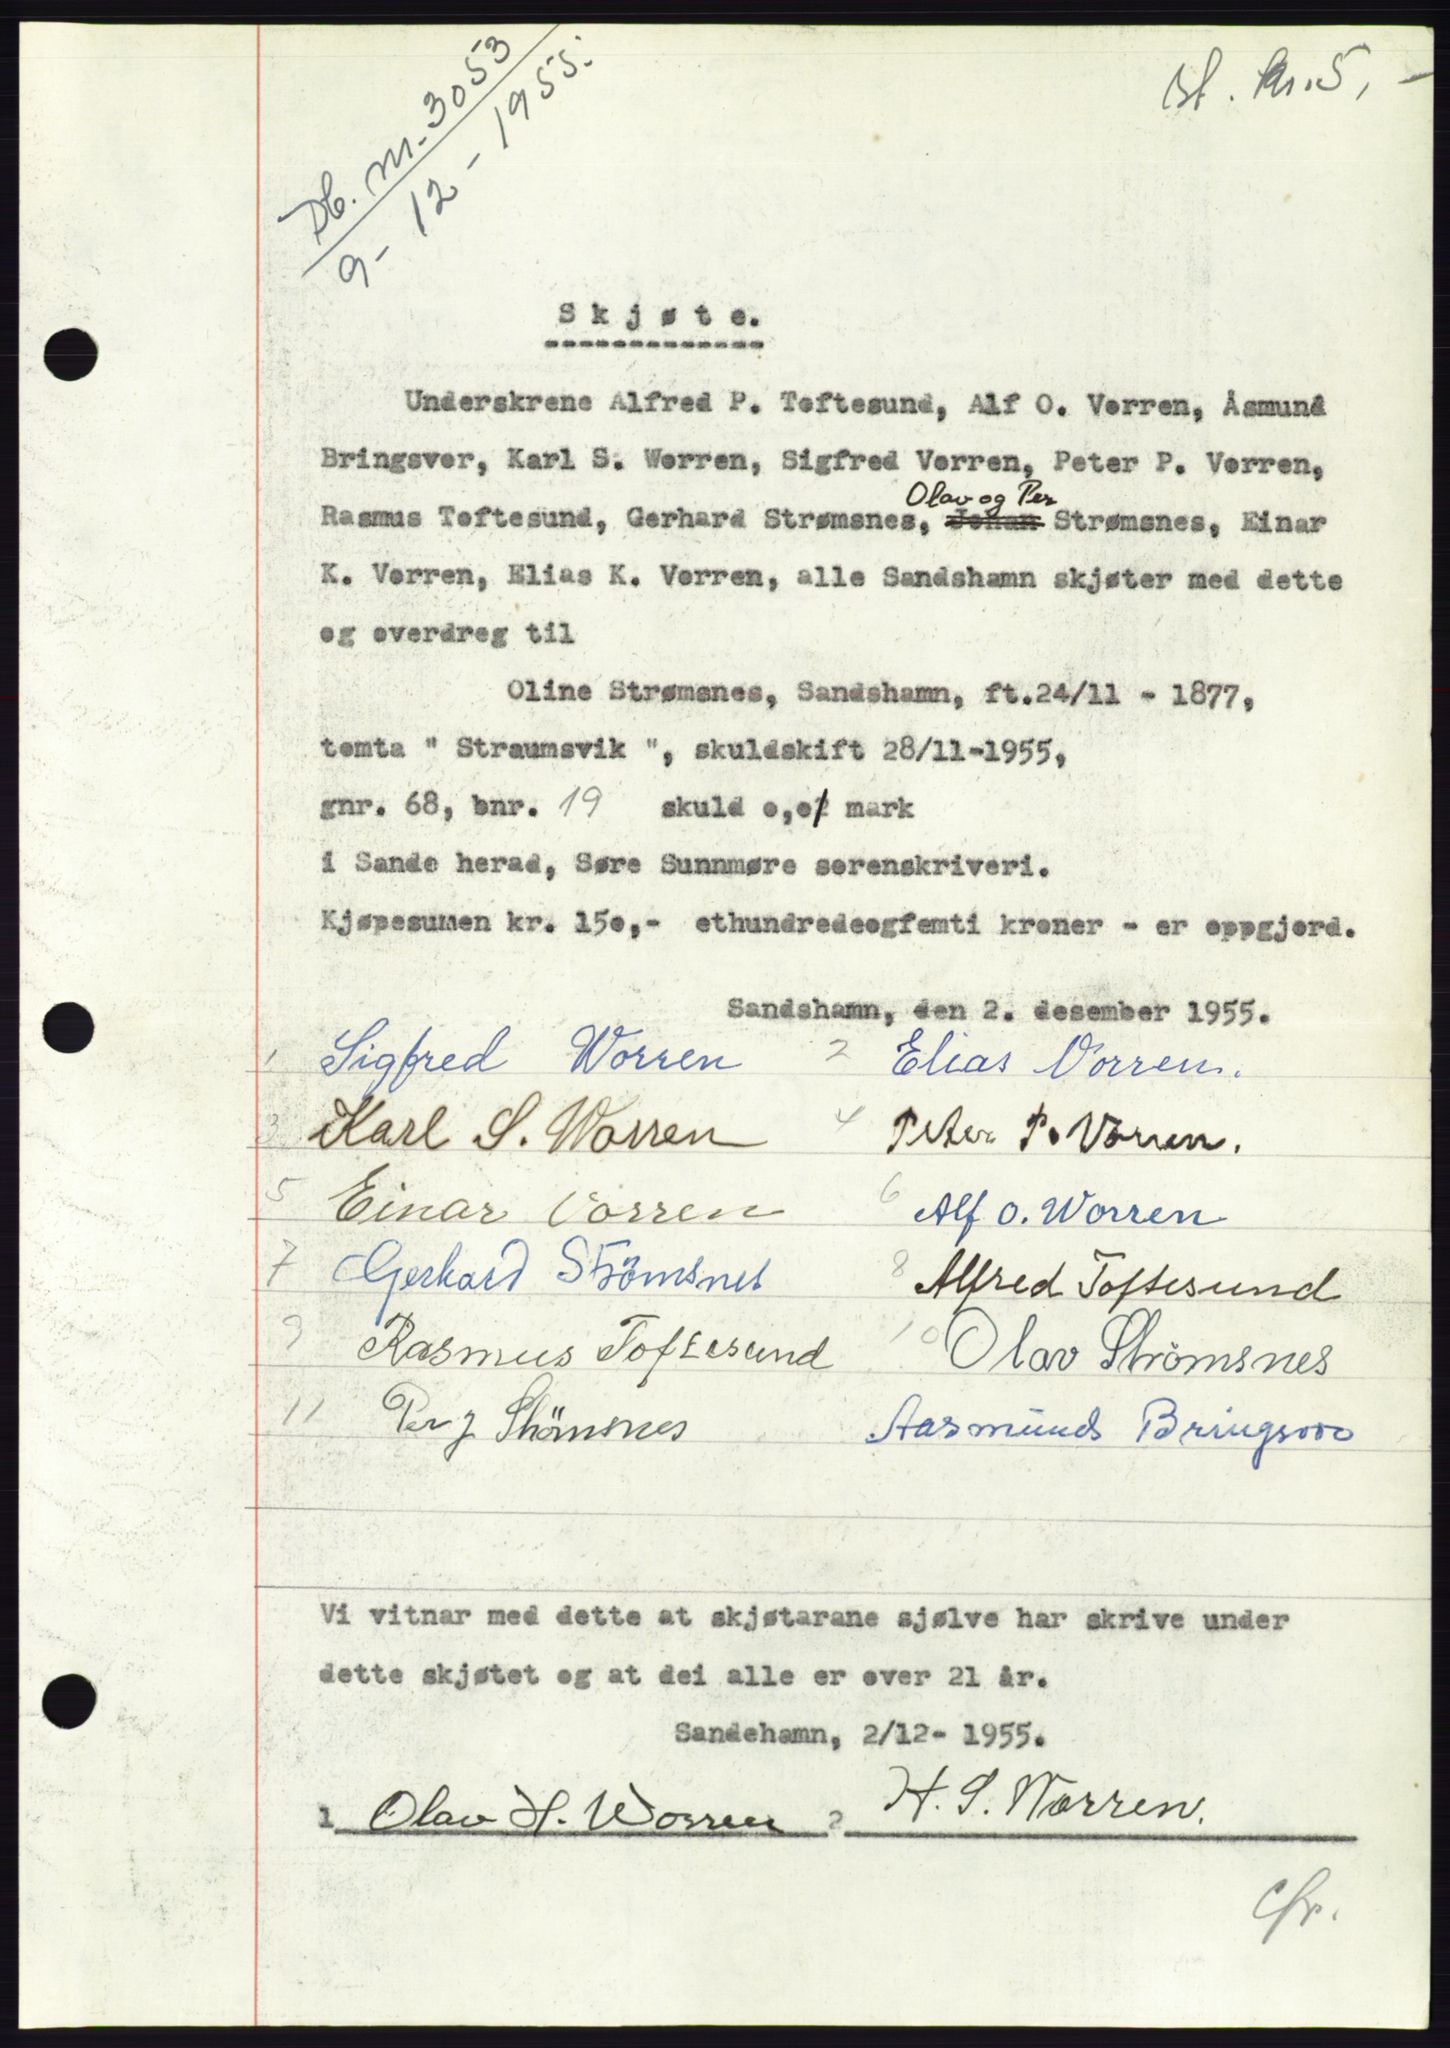 Db. nr. 3053
9-12-1955.
St. kr. 5,-
Skjøte.
Underskrene Alfred P. Toftesund, Alf O. Vorren, Åsmund
Bringsvor, Karl S. Worren, Sigfred Vorren, Peter P. Vorren,
Olav og Per
Rasmus Toftesund, Gerhard Strømsnes, Johan Strømsnes, Einar
K. Vorren, Elias K. Vorren, alle Sandshamn skjøter med dette
og overdreg til
Oline Strømsnes, Sandshamn, ft.24/11 - 1877,
tomta " Straumsvik ", skuldskift 28/11-1955,
gnr. 68, bnr. 19 skuld o,o1 mark
i Sande herad, Søre Sunnmøre sorenskriveri.
Kjøpesumen kr. 15o,- ethundredeogfemti kroner - er oppgjord.
Sandshamn, den 2. desember 1955.
1 Sigfred Worren 2 Elias Vorren.
3 Karl S. Worren 4 Peter P. Vorren.
5 Einar Vorren 6 Alf O. Worren
7 Gerhard Strömsnes 8 Alfred Toftesund
9 Rasmus Toftesund 10 Olav Strömsnes
11 Per J Strömsnes Aasmund Bringsvor
Vi vitnar med dette at skjøtarane sjølve har skrive under
dette skjøtet og at dei alle er over 21 år.
Sandehamn, 2/12- 1955.
1 Olav H. Worren 2 H. S. Worren.